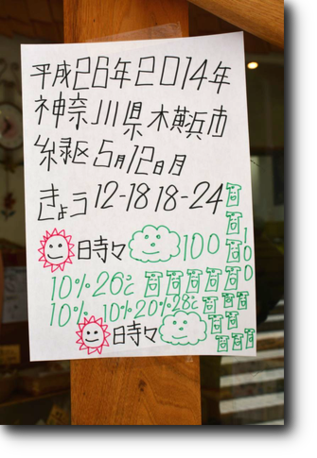 平成26年2014年
神奈川県横浜市
緑区5月12日月
きょう12-18 18-24
日時々 100 100
10% 26℃
10% 10% 20% 28℃
日時々